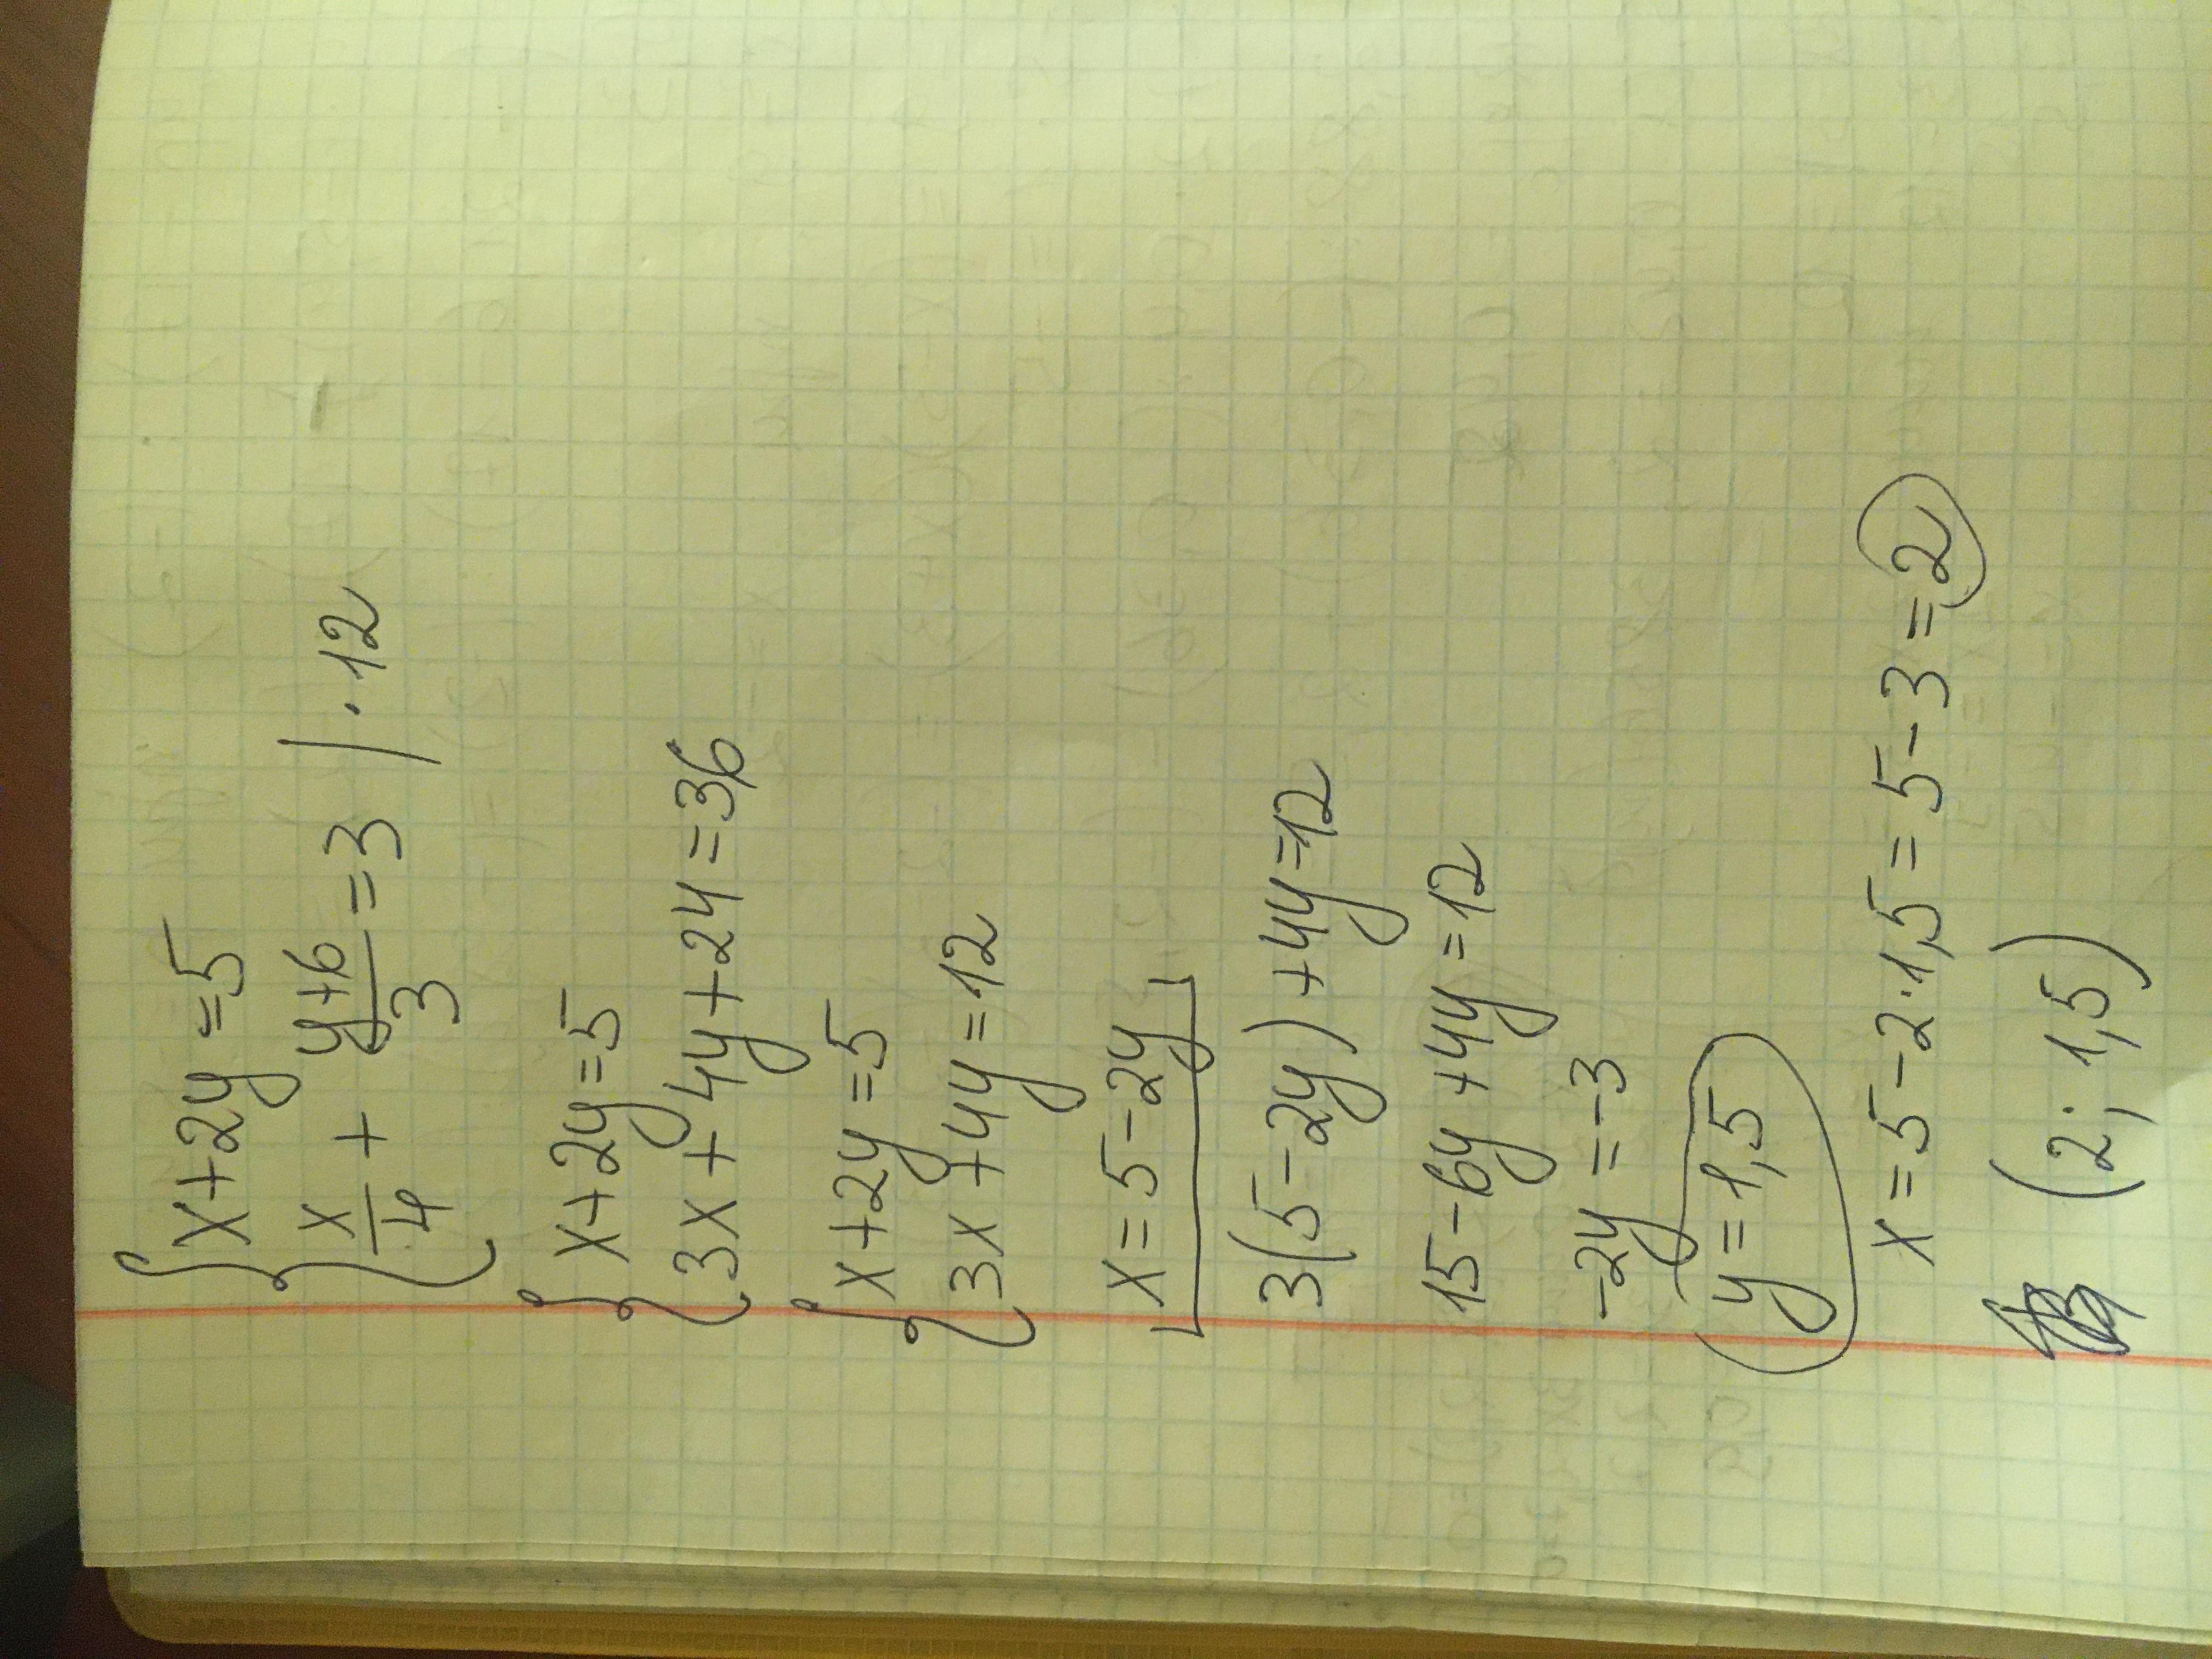 { x+2y=5
x/4 + (y+6)/3 = 3 | · 12
{ x+2y=5
3x+4y+24=36
{ x+2y=5
3x+4y=12
x=5-2y
3(5-2y)+4y=12
15-6y+4y=12
-2y=-3
y=1,5
x=5-2·1,5=5-3=2
(2; 1,5)